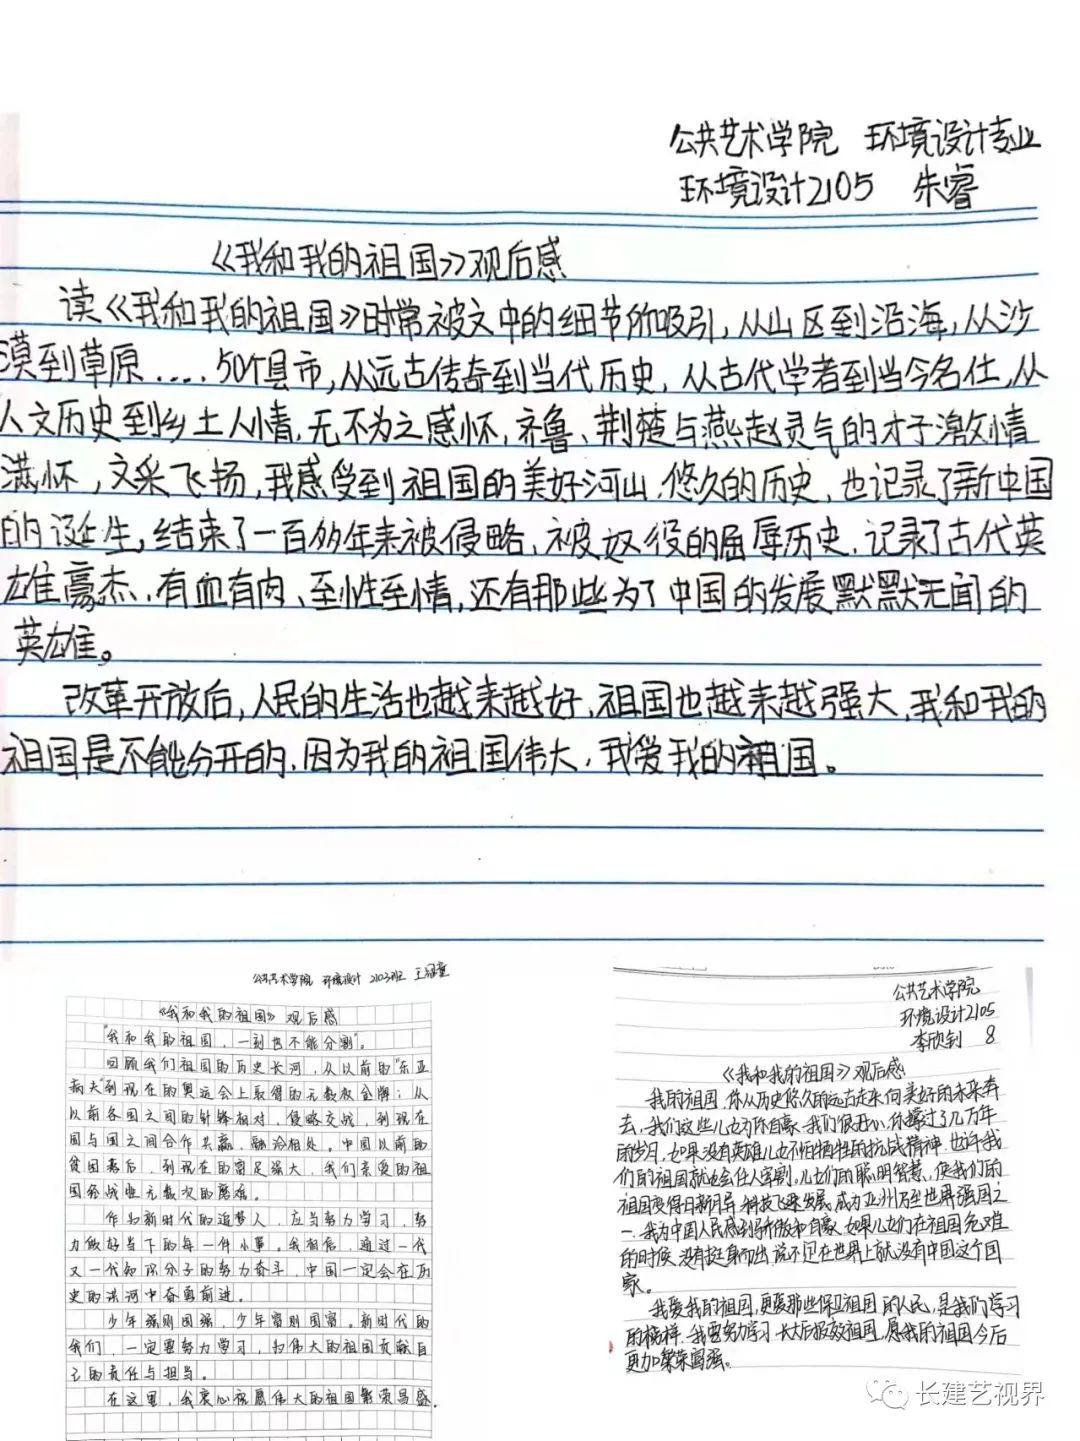 公共艺术学院 环境设计专业
环境设计2105 朱睿
《我和我的祖国》观后感
读《我和我的祖国》时常被文中的细节所吸引,从山区到沿海,从沙
漠到草原....50个县市,从远古传奇到当代历史,从古代学者到当今名仕,从
人文历史到乡土人情,无不为之感怀,齐鲁、荆楚与燕赵灵气的才子激情
满怀,文采飞扬,我感受到祖国的美好河山,悠久的历史,也记录了新中国
的诞生,结束了一百多年来被侵略、被奴役的屈辱历史,记录了古代英
雄豪杰、有血有肉、至性至情,还有那些为了中国的发展默默无闻的
英雄。
改革开放后,人民的生活也越来越好,祖国也越来越强大,我和我的
祖国是不能分开的,因为我的祖国伟大,我爱我的祖国。
公共艺术学院 环境设计 2103班 王冠童
《我和我的祖国》观后感
“我和我的祖国,一刻也不能分割”。
回顾我们祖国的历史长河,从以前的“东亚
病夫”到现在的奥运会上取得的无数枚金牌;从
以前各国之间的针锋相对,侵略交战,到现在
国与国之间合作共赢,融洽相处。中国以前的
贫困落后,到现在的富足强大,我们亲爱的祖
国经战胜无数次的磨难。
作为新时代的追梦人,应当努力学习,努
力做好当下的每一件小事。我相信,通过一代
又一代知识分子的努力奋斗,中国一定会在历
史的洪河中奋勇前进。
少年强则国强,少年富则国富。新时代的
我们,一定要努力学习,为伟大的祖国贡献自
己的责任与担当。
在这里,我衷心祝愿伟大的祖国繁荣昌盛。
公共艺术学院
环境设计2105
李欣钊 8
《我和我的祖国》观后感
我的祖国,你从历史悠久的远古走来,向美好的未来奔
去,我们这些儿女为你自豪、我们很开心,你撑过了几万年
的岁月,如果没有英雄儿女不怕牺牲的抗战精神,也许我
们的祖国就也会任人宰割。儿女们的聪明智慧,使我们的
祖国变得日新月异,科技飞速发展,成为亚洲乃至世界强国之
一、我为中国人民感到骄傲和自豪,如果儿女们在祖国危难
的时候,没有挺身而出,说不定在世界上就没有中国这个国
家。
我爱我的祖国,更爱那些保卫祖国的人民,是我们学习
的榜样,我要努力学习,长大后报效祖国,愿我的祖国今后
更加繁荣富强。
长建艺视界